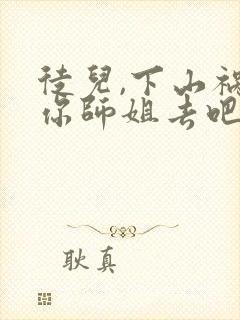 徒兒,下山祸
你師姐去吧
耿真